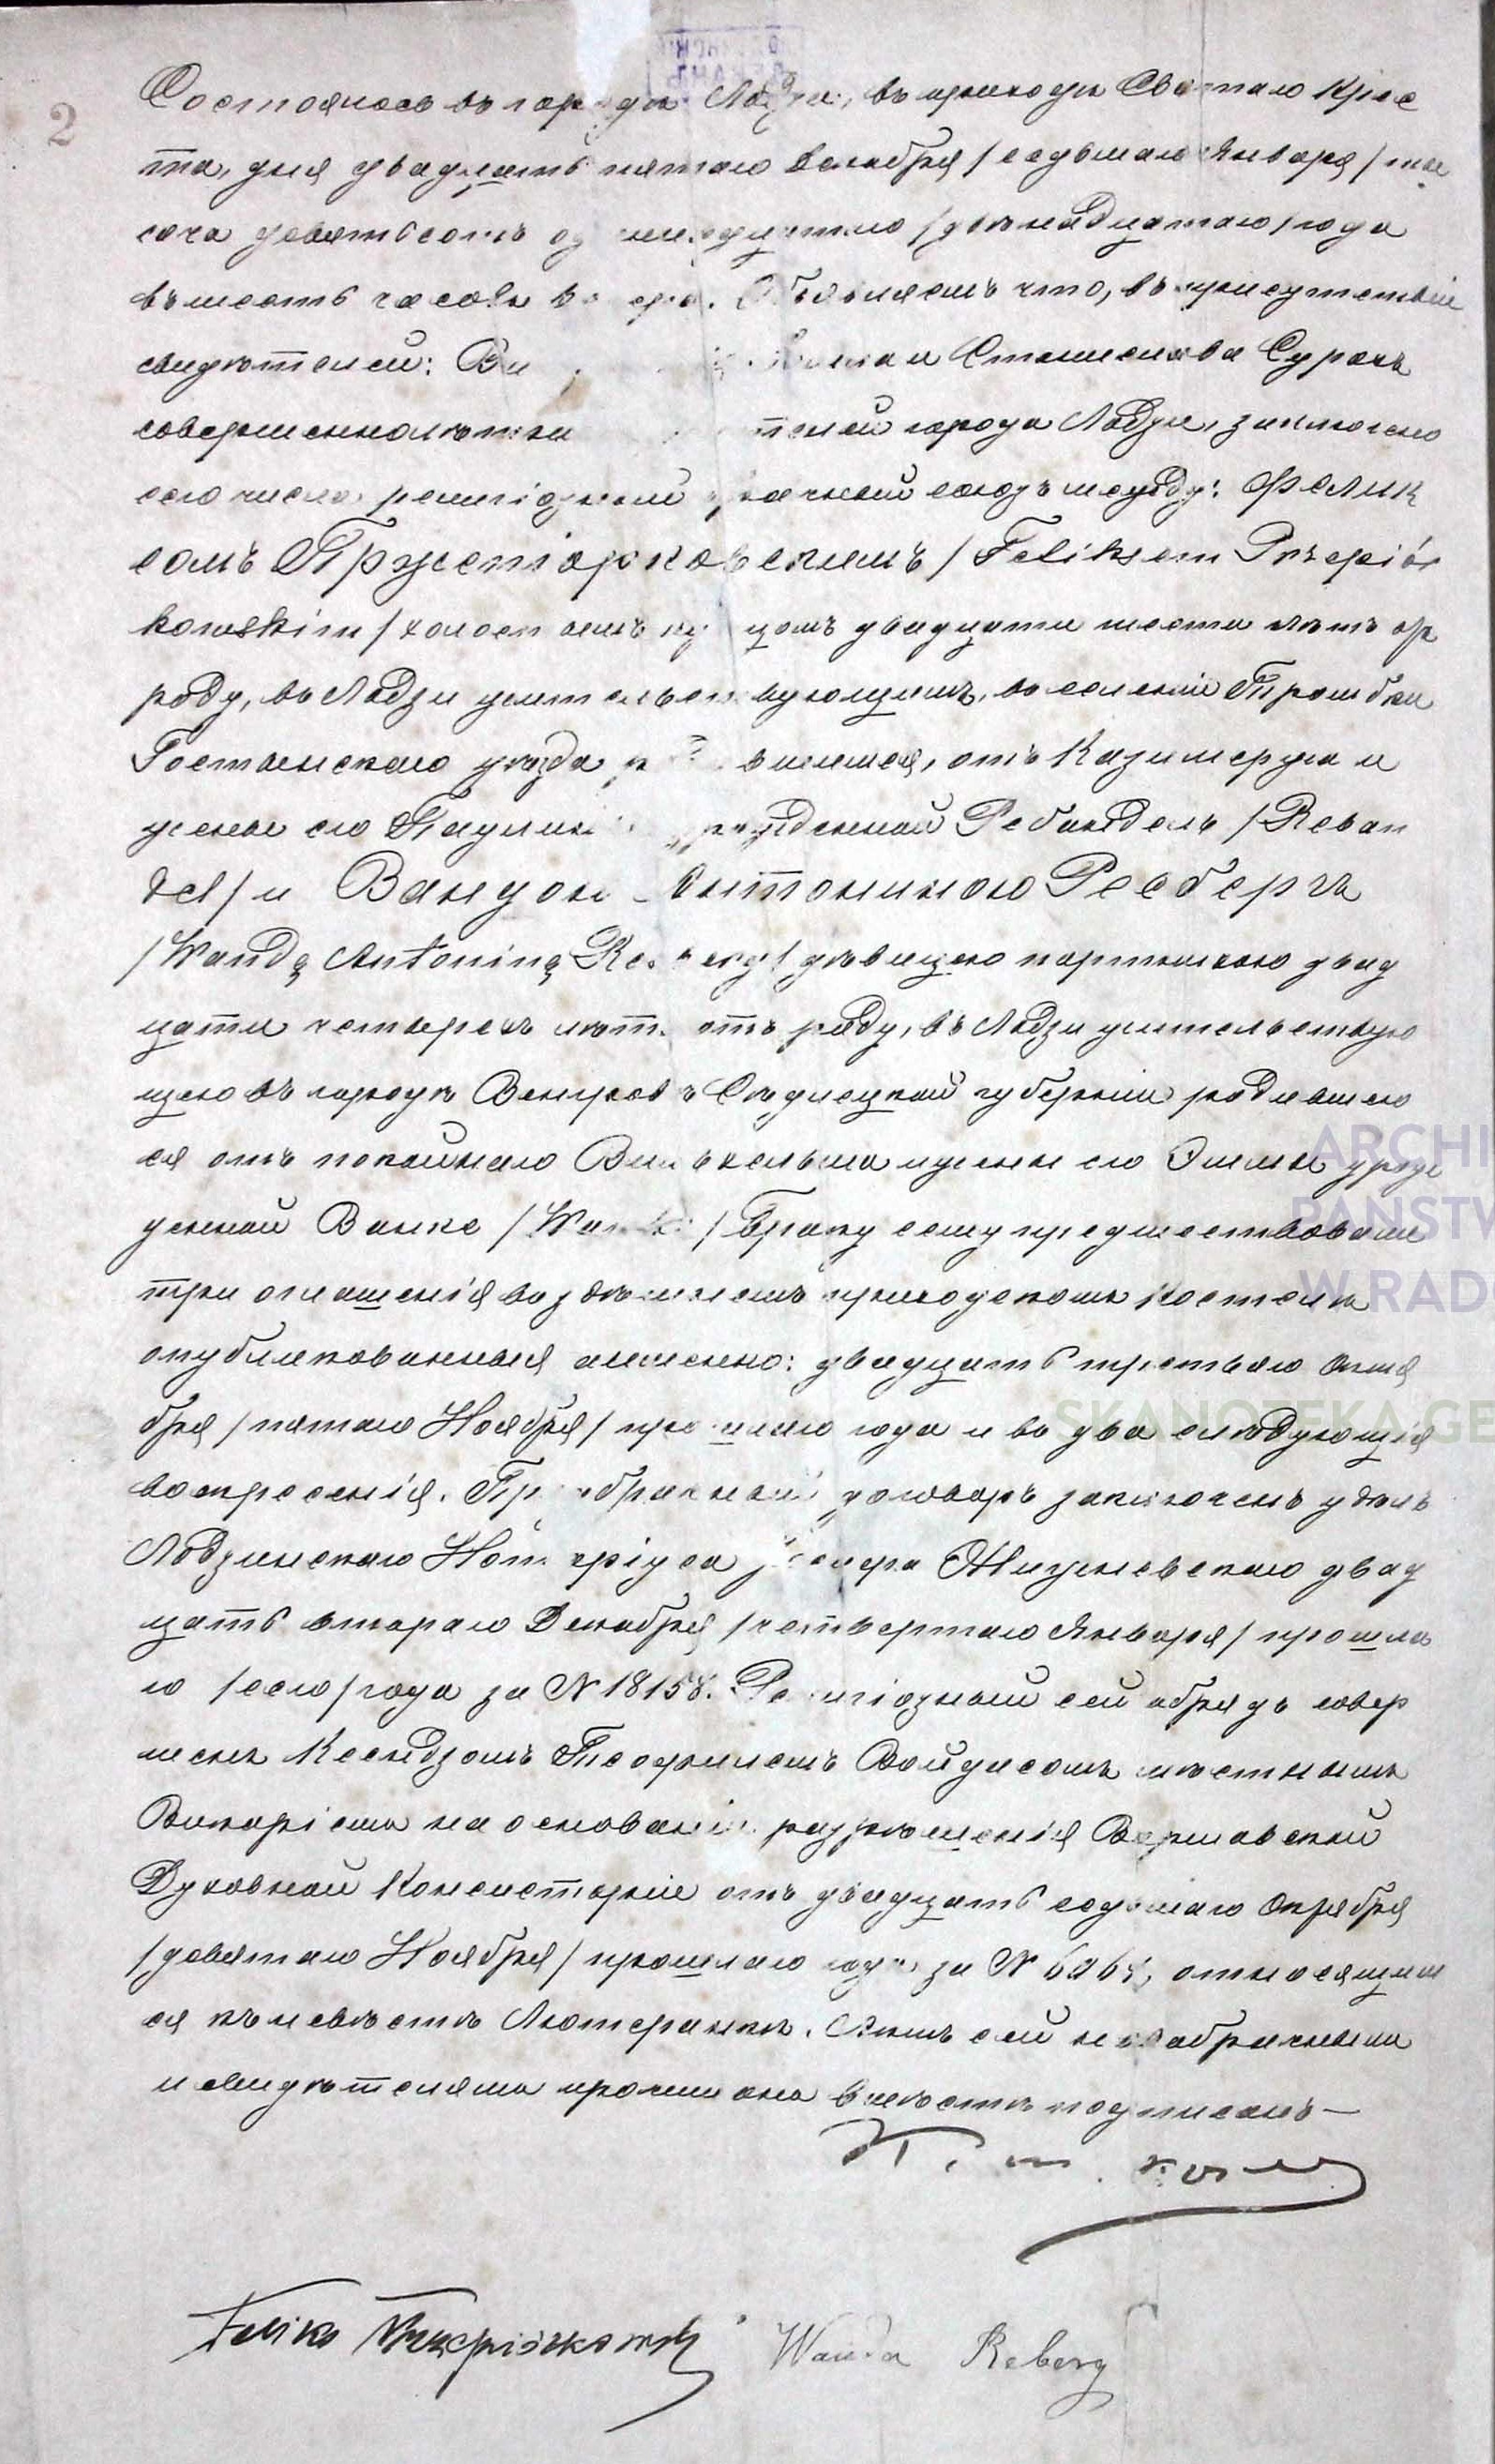 2
Состоялось въ городѣ Лодзи, въ приходѣ Святаго Крес
та, дня двадцать пятаго Декабря / седьмаго Января / тыс
сяча девятьсотъ одиннадцатаго / двѣнадцатаго / года
въ шесть часовъ вечера. Объявляемъ что, въ присутствіи
свидѣтелей: и Станислава
совершеннолѣтнихъ города Лодзи, заключено
сего числа религіозный брачный союзъ между: Фелик
сомъ Пржепіорковскимъ / Feliksem Przepiór
kowskim / холостымъ купцомъ двадцати шести лѣтъ от
роду, въ Лодзи жительствующимъ, въ селеніи
Гостынскаго уѣзда родившимся, отъ Казимержа и
жены его Паулины урожденной Ребандель / Reban
del / и Вандою Антониною Ресбергъ
/ Wandą Antoniną / дѣвицею портнихою двад
цати четырехъ лѣтъ отъ роду, въ Лодзи жительствую
щею въ городѣ Венгровѣ Сѣдлецкой губерніи родившею
ся отъ покойнаго Вильгельма и жены его Эммы урож
денной Ванке / / Браку сему предшествовали
три оглашенія въ здѣшнемъ приходскомъ костелѣ
опубликованныя именно: двадцать третьяго Октя
бря / пятаго Ноября / прошлаго года и въ два слѣдующія
воскресенія. Предбрачный договоръ заключенъ у дѣлъ
Лодзинскаго Нотаріуса двад
цать втораго Декабря / четвертаго Января / прошла
го / сего / года за N 18158. Религіозный сей обрядъ совер
шенъ Ксендзомъ Теофилемъ Войдасомъ мѣстнымъ
Викаріемъ на основаніи разрѣшенія Варшавской
Духовной Консисторіи отъ двадцать седьмаго Октября
/ девятаго Ноября / прошлаго года за N относящим
ся къ невѣстѣ Лютеранкѣ. Актъ сей новобрачнымъ
и свидѣтелямъ прочитанъ вмѣстѣ подписанъ —
Feliks Przepiórkowski Wanda Reberg
ARCHI
PAŃSTW
W RAD
SKANOTEKA.GE